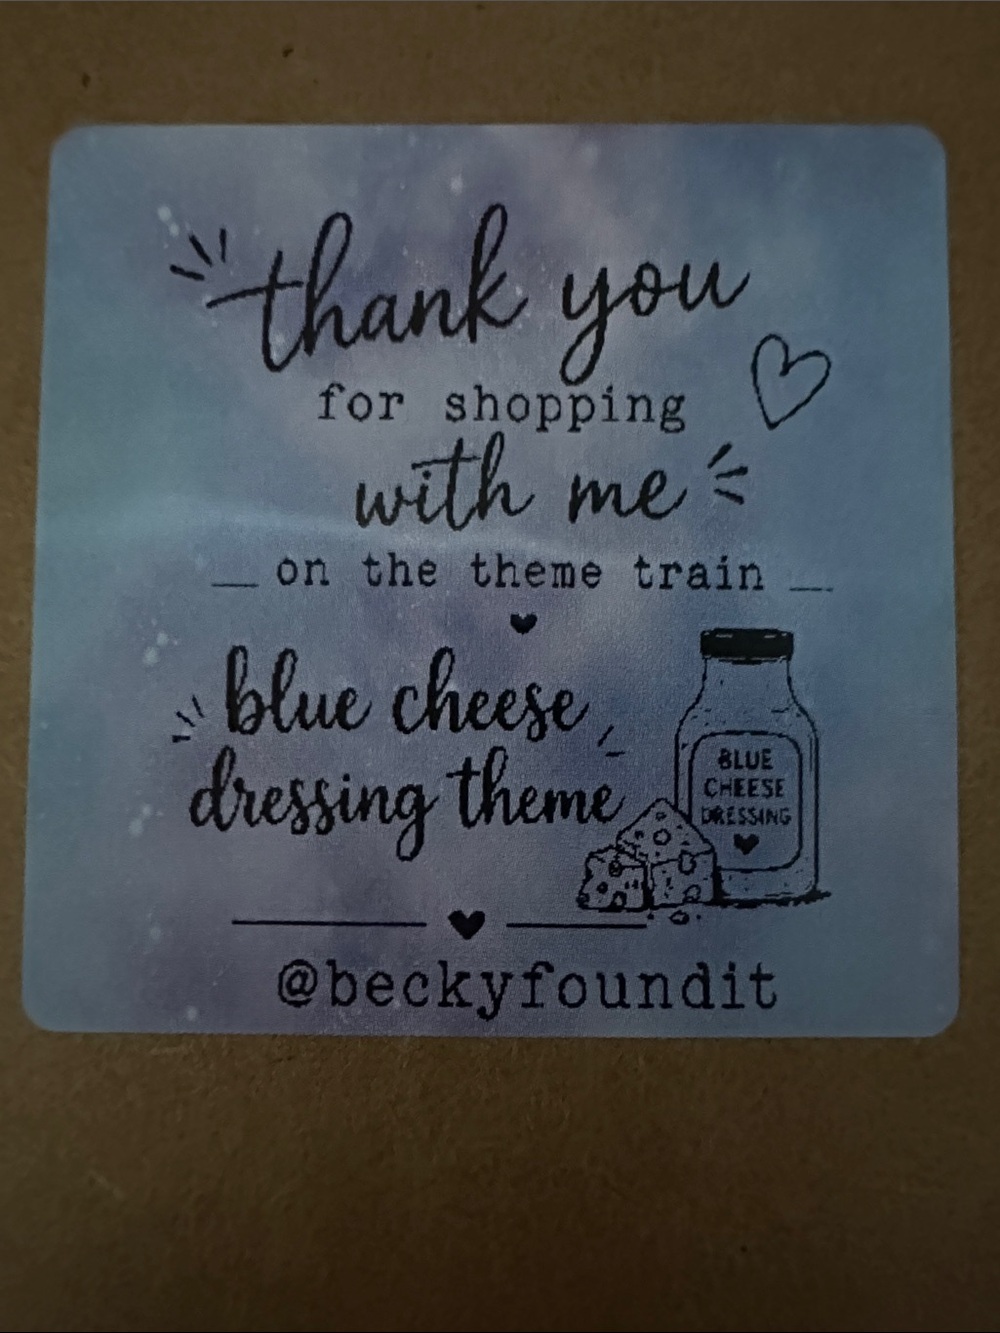 thank you
for shopping
with me
on the theme train
blue cheese
dressing theme
BLUE
CHEESE
DRESSING
@beckyfoundit